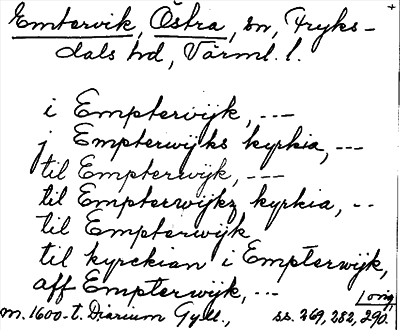 Emtervik, Östra, sn, Fryks-
dals hd, Värml. l.
i Empterwijk, ---
j Empterwijks kyrkia, ---
til Empterwijk, ---
til Empterwijkz kyrkia, --
til Empterwijk
til kyrckian i Empterwijk,
aff Empterwijk, ---
orig.
m. 1600-t. Diarium Gyll., ss. 269, 282, 290.